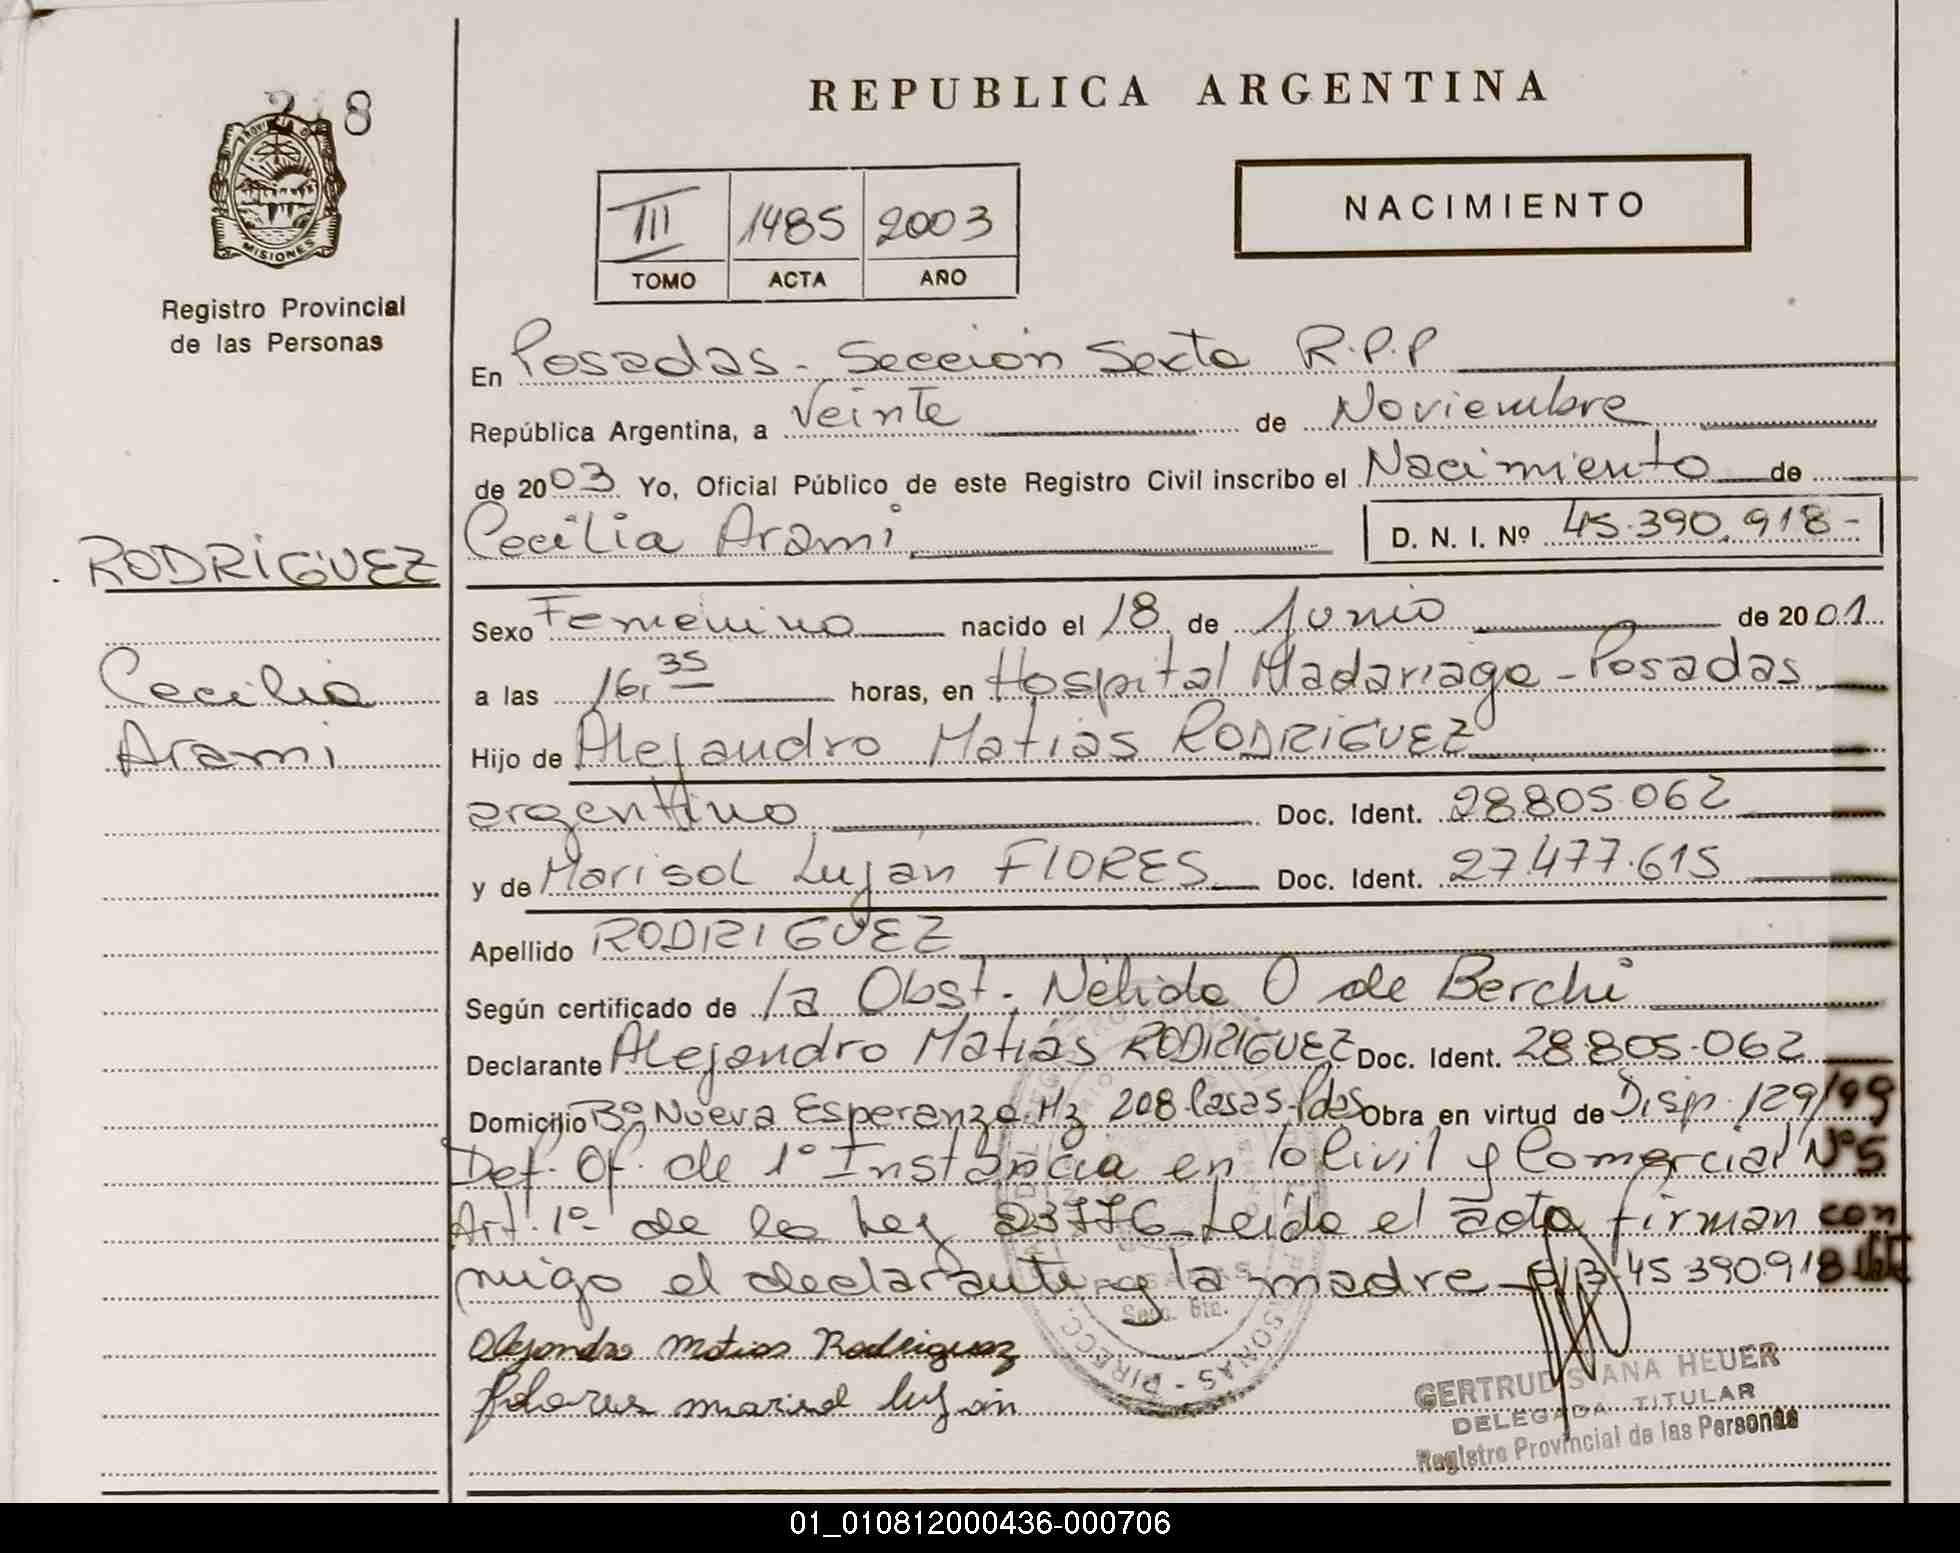 218
PROVINCIA DE
MISIONES
Registro Provincial
de las Personas
RODRIGUEZ
Cecilia
Arami
REPUBLICA ARGENTINA
III 1485 2003
TOMO ACTA AÑO
NACIMIENTO
En Posadas - Sección Sexta R.P.P
República Argentina, a Veinte de Noviembre
de 2003 Yo, Oficial Público de este Registro Civil inscribo el Nacimiento de
Cecilia Arami D. N. I. Nº 45.390.918-
Sexo Femenino nacido el 18 de Junio de 2001
a las 16,35 horas, en Hospital Madariaga - Posadas
Hijo de Alejandro Matías RODRIGUEZ
argentino Doc. Ident. 28.805.062
y de Marisol Luján FLORES Doc. Ident. 27.477.615
Apellido RODRIGUEZ
Según certificado de la Obst. Nélida O de Berchi
Declarante Alejandro Matías RODRIGUEZ Doc. Ident. 28.805.062
Domicilio Bº Nueva Esperanza Mz 208 Casas-Pdas Obra en virtud de Disp. 129/99
Def. Of. de 1º Instancia en lo Civil y Comercial Nº5
Art. 1º de la Ley 23776 Leída el acta firman con
migo el declarante y la madre 45 390.918 Vale
Alejandro Matias Rodriguez
Flores marisol lujan
Secc. 6ta.
GERTRUDIS ANA HEUER
DELEGADA TITULAR
Registro Provincial de las Personas
01_010812000436-000706